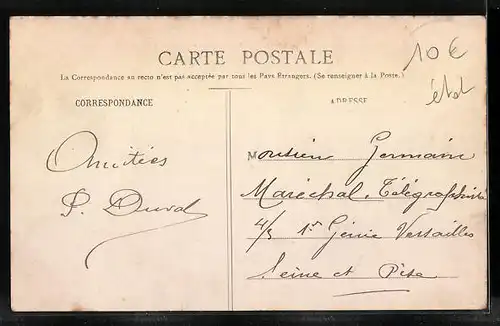 CARTE POSTALE
10 €
La Correspondance au recto n'est pas acceptée par tous les Pays Etrangers. (Se renseigner à la Poste.)
CORRESPONDANCE
Amitiés
P. Duval
ADRESSE
Monsieur Germain
Maréchal. Télégraphiste
1er Génie Versailles
Seine et Oise